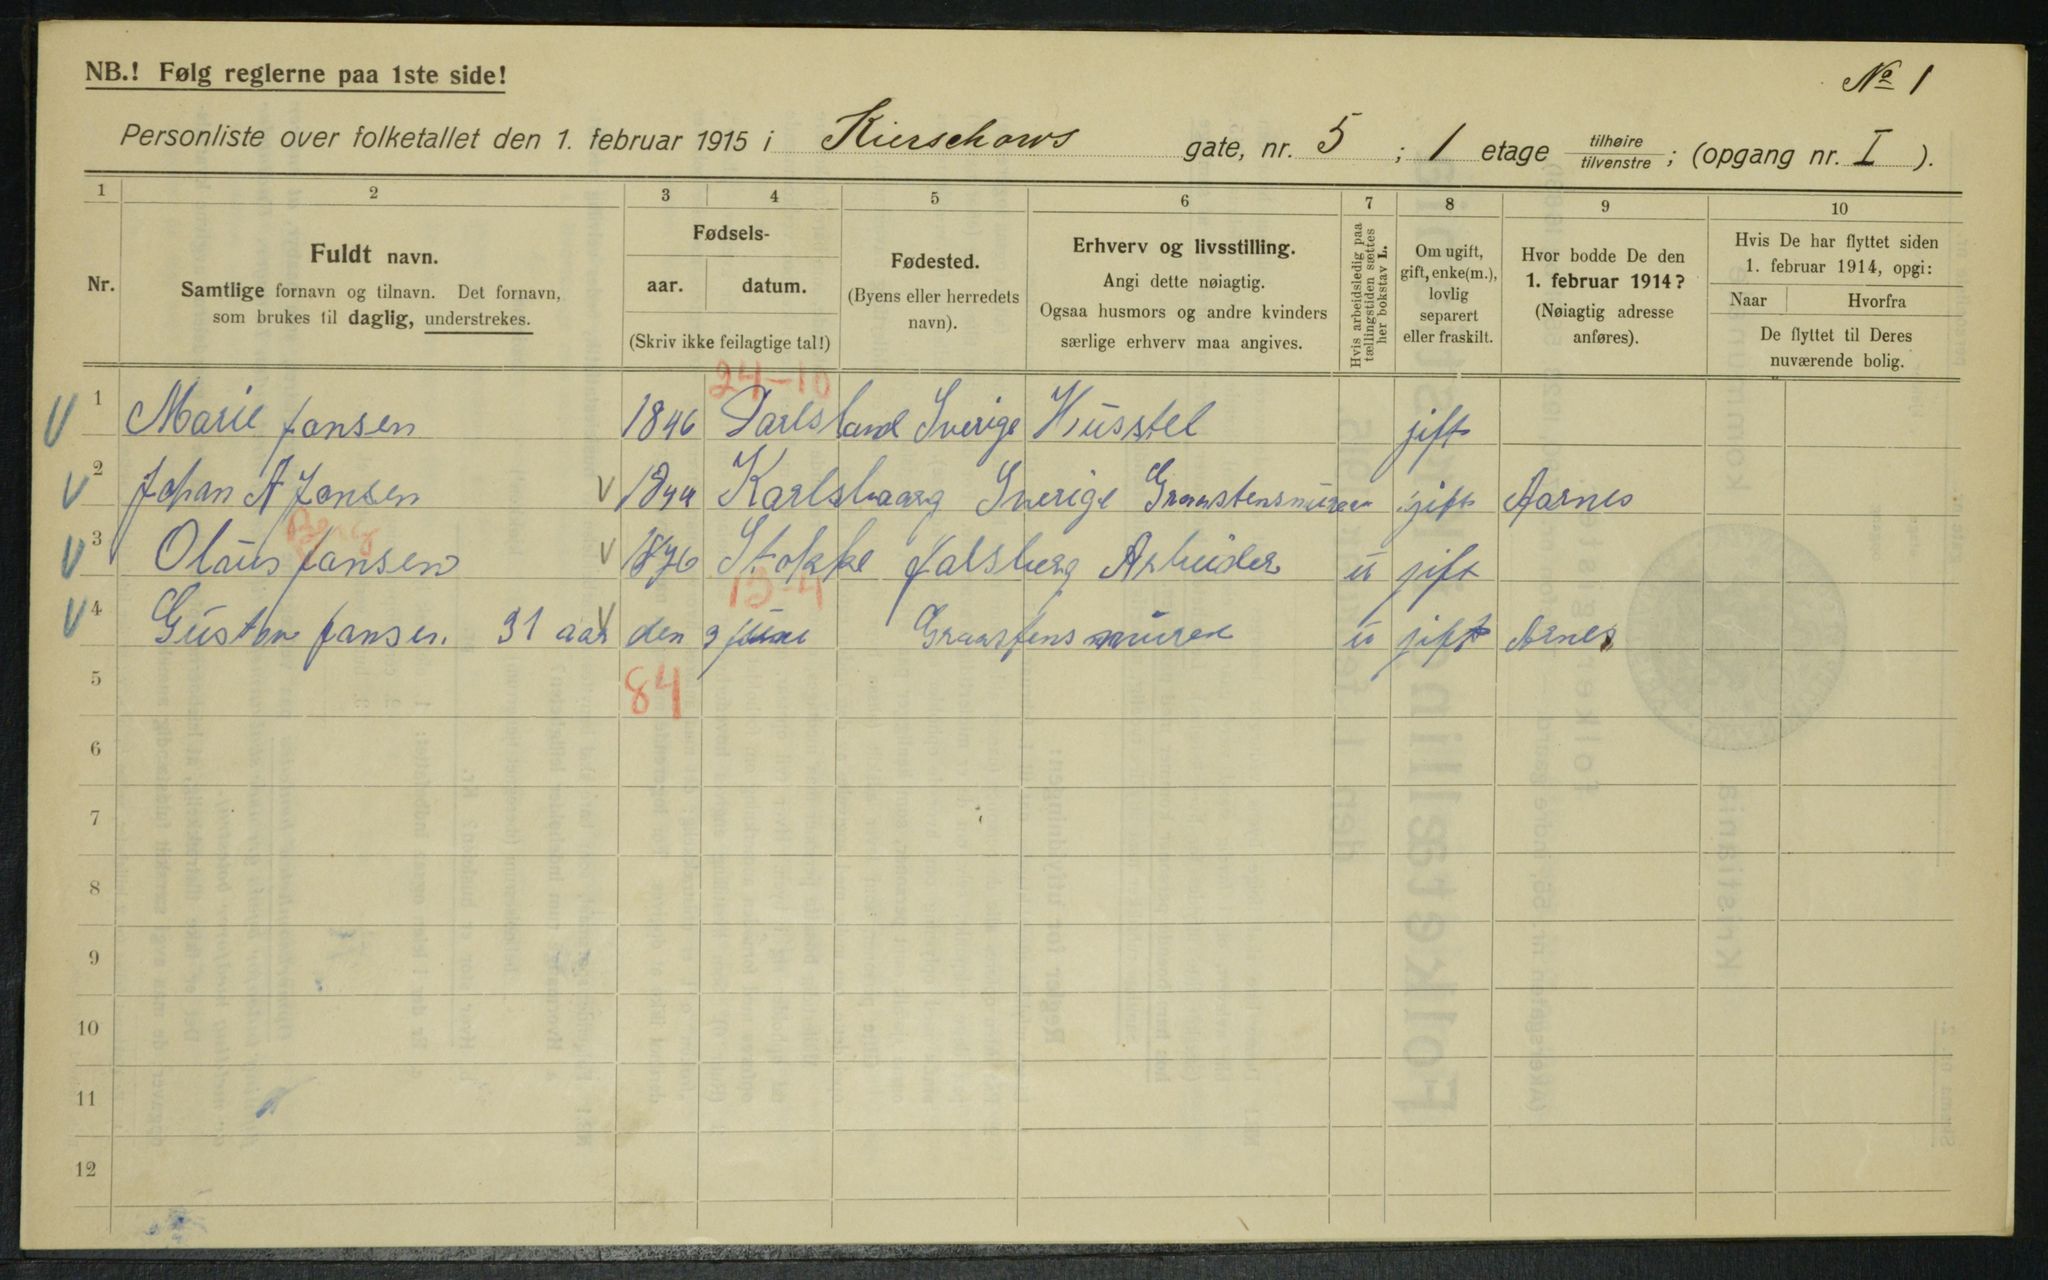 NB.! Følg reglerne paa 1ste side!
No 1
Personliste over folketallet den 1. februar 1915 i Kierschows gate, nr. 5 ; 1 etage tilhøire tilvenstre ; (opgang nr. I ).
1 2 3 4 5 6 7 8 9 10
Nr.
Fuldt navn.
Samtlige fornavn og tilnavn. Det fornavn,
som brukes til daglig, understrekes.
Fødsels-
aar. datum.
(Skriv ikke feilagtige tal!)
Fødested.
(Byens eller herredets
navn).
Erhverv og livsstilling.
Angi dette nøiagtig.
Ogsaa husmors og andre kvinders
særlige erhverv maa angives.
Hvis arbeidsledig paa
tællingstiden sættes
her bokstav L.
Om ugift,
gift, enke(m.),
lovlig
separert
eller fraskilt.
Hvor bodde De den
1. februar 1914?
(Nøiagtig adresse
anføres).
Hvis De har flyttet siden
1. februar 1914, opgi:
Naar Hvorfra
De flyttet til Deres
nuværende bolig.
24-10
1 Marie Jansen 1846 Darlsland Sverige Husstel jift
2 Johan A Jansen 1844 Karlsbaarg Sverige Graastensmurer jift Aarnes
3 Olaus Jansen 1876 Stokke Jalsberg Arbeider u jift
13-4
4 Gustav Jansen. 31 aar den 9 juni Graastens muren u jift Arnes
5 84
6
7
8
9
10
11
12